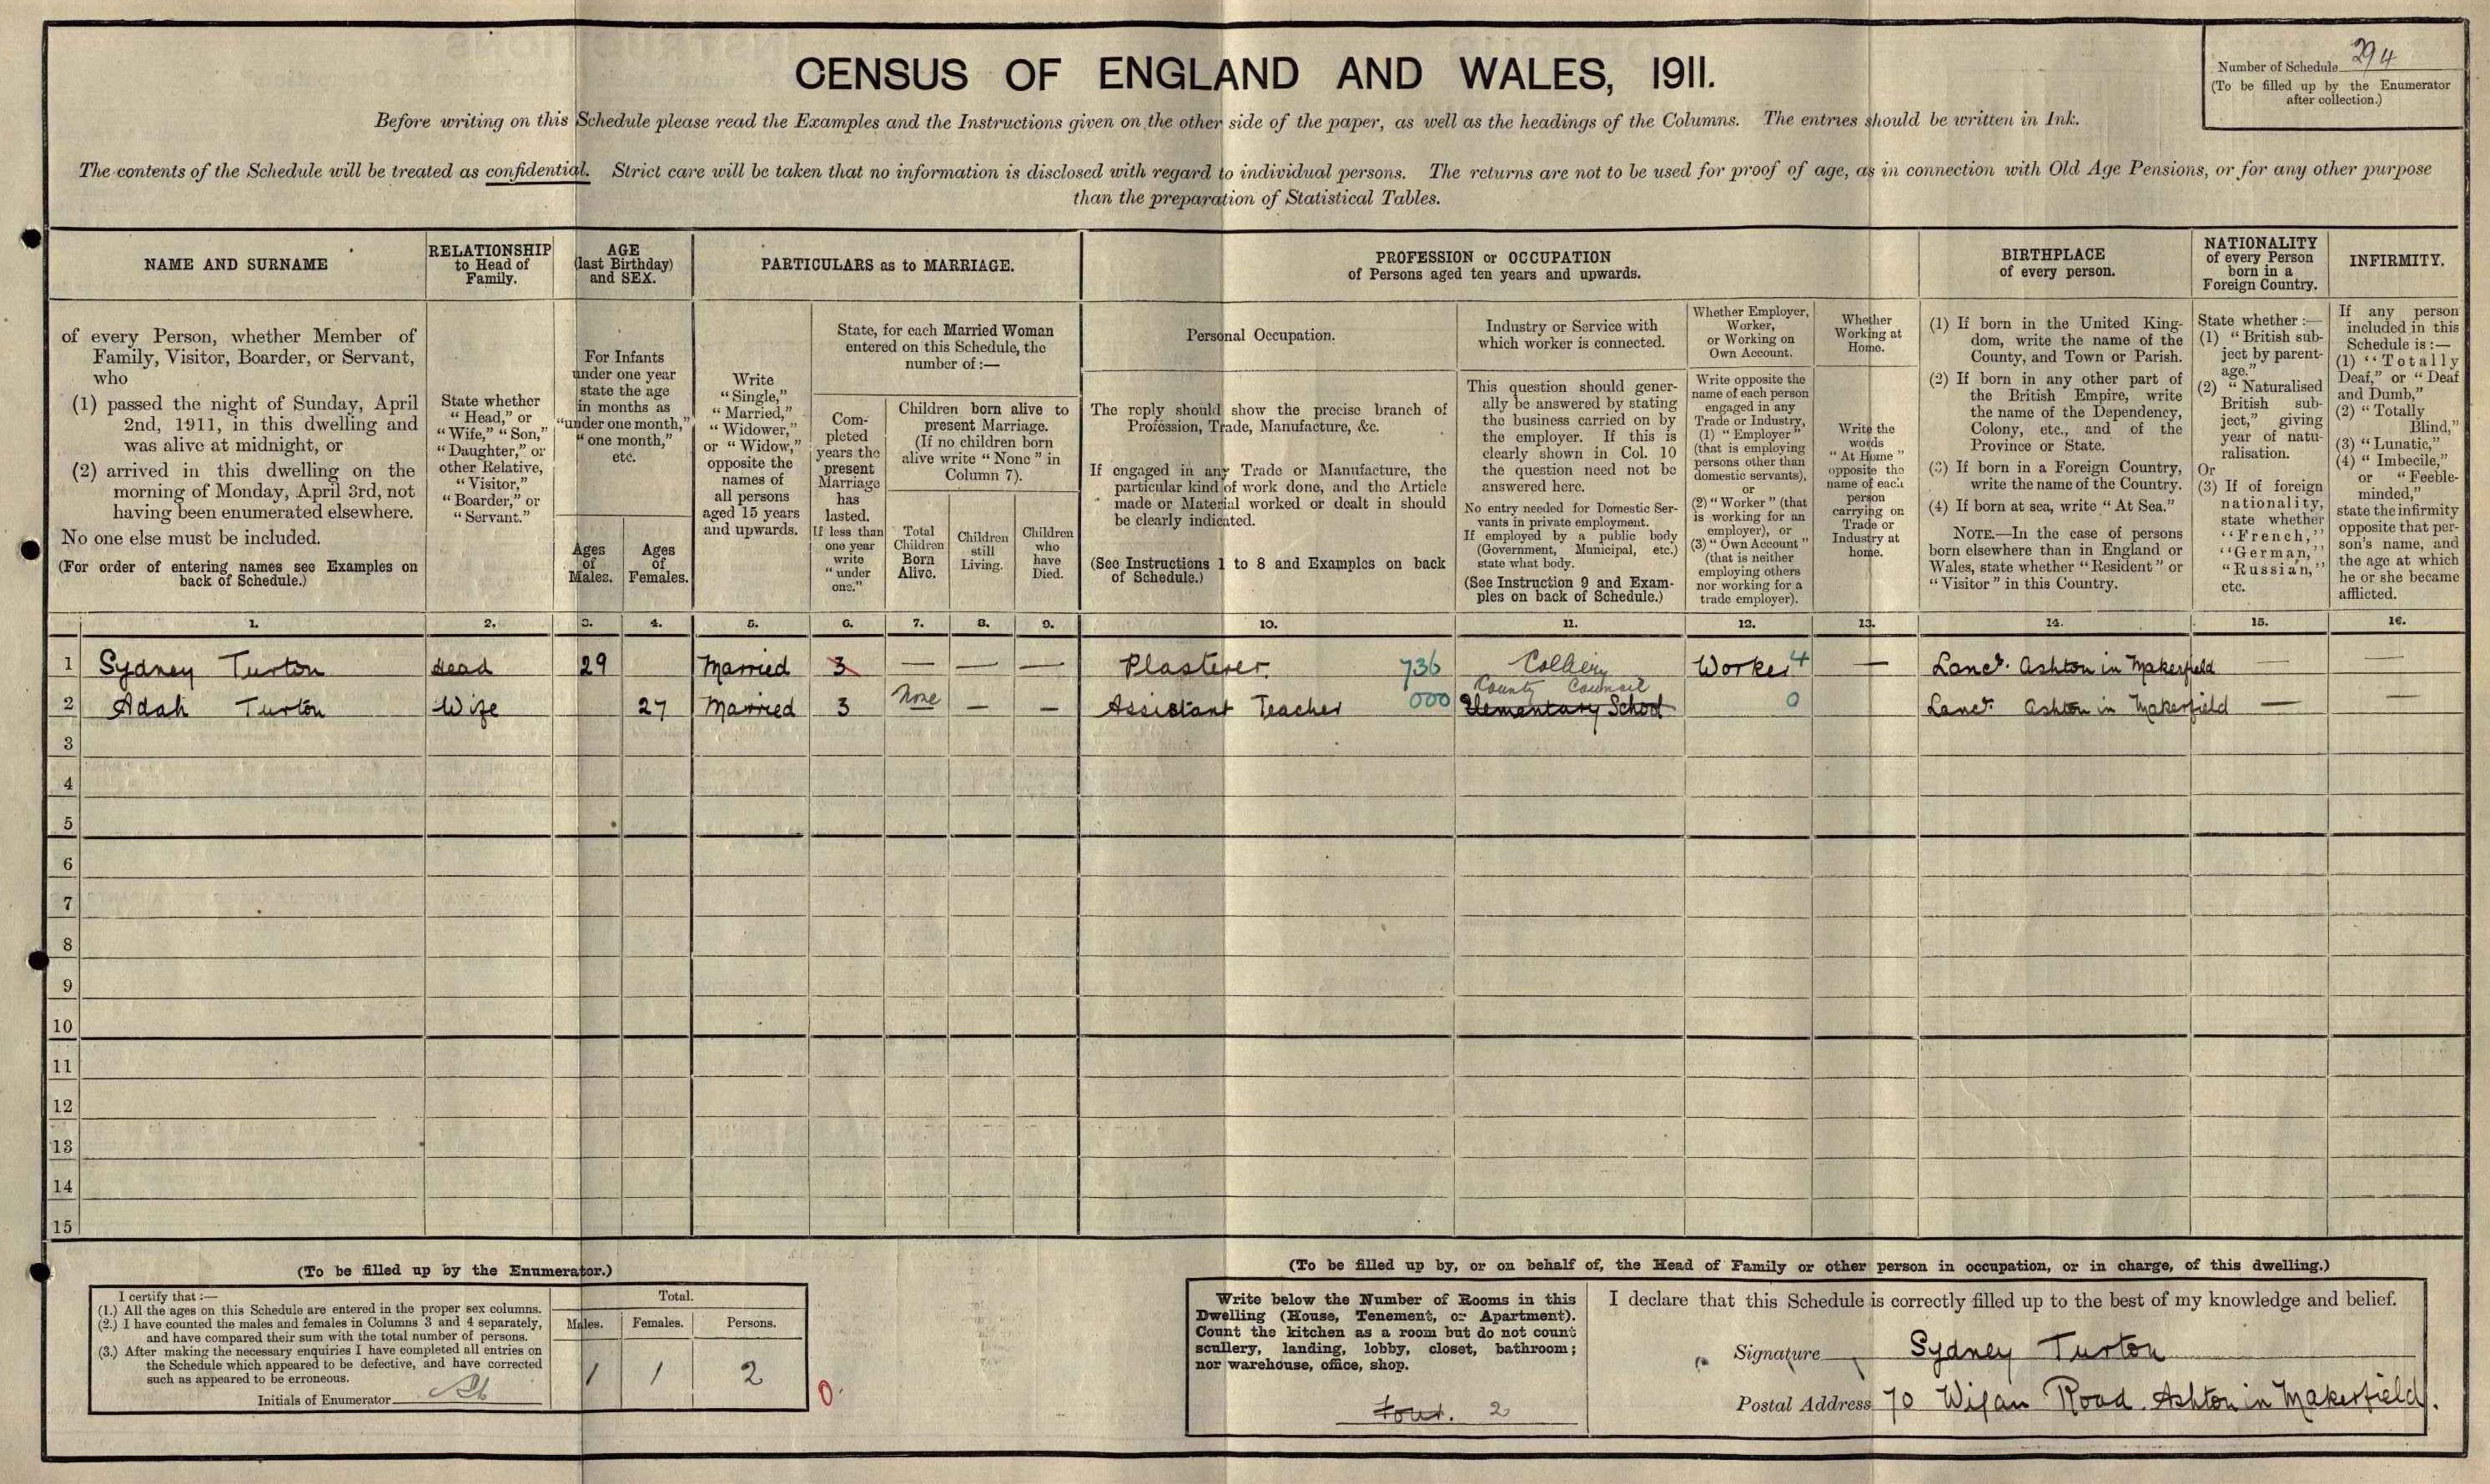 CENSUS OF ENGLAND AND WALES, 1911.
Number of Schedule 294
(To be filled up by the Enumerator
after collection.)
Before writing on this Schedule please read the Examples and the Instructions given on the other side of the paper, as well as the headings of the Columns. The entries should be written in Ink.
The contents of the Schedule will be treated as confidential. Strict care will be taken that no information is disclosed with regard to individual persons. The returns are not to be used for proof of age, as in connection with Old Age Pensions, or for any other purpose
than the preparation of Statistical Tables.
NAME AND SURNAME
of every Person, whether Member of
Family, Visitor, Boarder, or Servant,
who
(1) passed the night of Sunday, April
2nd, 1911, in this dwelling and
was alive at midnight, or
(2) arrived in this dwelling on the
morning of Monday, April 3rd, not
having been enumerated elsewhere.
No one else must be included.
(For order of entering names see Examples on
back of Schedule.)
RELATIONSHIP
to Head of
Family.
State whether
"Head," or
"Wife," "Son,"
"Daughter," or
other Relative,
"Visitor,"
"Boarder," or
"Servant."
AGE
(last Birthday)
and SEX.
For Infants
under one year
state the age
in months as
"under one month,"
"one month,"
etc.
Ages
of
Males.
Ages
of
Females.
PARTICULARS as to MARRIAGE.
Write
"Single,"
"Married,"
"Widower,"
or "Widow,"
opposite the
names of
all persons
aged 15 years
and upwards.
State, for each Married Woman
entered on this Schedule, the
number of:—
Com-
pleted
years the
present
Marriage
has
lasted.
If less than
one year
write
"under
one."
Children born alive to
present Marriage.
(If no children born
alive write "None" in
Column 7).
Total
Children
Born
Alive.
Children
still
Living.
Children
who
have
Died.
PROFESSION or OCCUPATION
of Persons aged ten years and upwards.
Personal Occupation.
The reply should show the precise branch of
Profession, Trade, Manufacture, &c.
If engaged in any Trade or Manufacture, the
particular kind of work done, and the Article
made or Material worked or dealt in should
be clearly indicated.
(See Instructions 1 to 8 and Examples on back
of Schedule.)
Industry or Service with
which worker is connected.
This question should gener-
ally be answered by stating
the business carried on by
the employer. If this is
clearly shown in Col. 10
the question need not be
answered here.
No entry needed for Domestic Ser-
vants in private employment.
If employed by a public body
(Government, Municipal, etc.)
state what body.
(See Instruction 9 and Exam-
ples on back of Schedule.)
Whether Employer,
Worker,
or Working on
Own Account.
Write opposite the
name of each person
engaged in any
Trade or Industry,
(1) "Employer"
(that is employing
persons other than
domestic servants),
or
(2) "Worker" (that
is working for an
employer), or
(3) "Own Account"
(that is neither
employing others
nor working for a
trade employer).
Whether
Working at
Home.
Write the
words
"At Home"
opposite the
name of each
person
carrying on
Trade or
Industry at
home.
BIRTHPLACE
of every person.
(1) If born in the United King-
dom, write the name of the
County, and Town or Parish.
(2) If born in any other part of
the British Empire, write
the name of the Dependency,
Colony, etc., and of the
Province or State.
(3) If born in a Foreign Country,
write the name of the Country.
(4) If born at sea, write "At Sea."
NOTE.—In the case of persons
born elsewhere than in England or
Wales, state whether "Resident" or
"Visitor" in this Country.
NATIONALITY
of every Person
born in a
Foreign Country.
State whether:—
(1) "British sub-
ject by parent-
age."
(2) "Naturalised
British sub-
ject," giving
year of natu-
ralisation.
Or
(3) If of foreign
nationality,
state whether
"French,"
"German,"
"Russian,"
etc.
INFIRMITY.
If any person
included in this
Schedule is:—
(1) "Totally
Deaf," or "Deaf
and Dumb,"
(2) "Totally
Blind,"
(3) "Lunatic,"
(4) "Imbecile,"
or "Feeble-
minded,"
state the infirmity
opposite that per-
son's name, and
the age at which
he or she became
afflicted.
1. 2. 3. 4. 5. 6. 7. 8. 9. 10. 11. 12. 13. 14. 15. 16.
1 Sydney Turton Head 29 Married 3 — — — Plasterer 736 Colliery Worker 4 — Lancs. Ashton in Makerfield — —
County Council
2 Adah Turton Wife 27 Married 3 None — — Assistant Teacher 000 Elementary School 0 Lancs. Ashton in Makerfield — —
3
4
5
6
7
8
9
10
11
12
13
14
15
(To be filled up by the Enumerator.)
I certify that:—
(1.) All the ages on this Schedule are entered in the proper sex columns.
(2.) I have counted the males and females in Columns 3 and 4 separately,
and have compared their sum with the total number of persons.
(3.) After making the necessary enquiries I have completed all entries on
the Schedule which appeared to be defective, and have corrected
such as appeared to be erroneous.
Initials of Enumerator
Total.
Males. Females. Persons.
1 1 2
0.
(To be filled up by, or on behalf of, the Head of Family or other person in occupation, or in charge, of this dwelling.)
Write below the Number of Rooms in this
Dwelling (House, Tenement, or Apartment).
Count the kitchen as a room but do not count
scullery, landing, lobby, closet, bathroom;
nor warehouse, office, shop.
Four. 2
I declare that this Schedule is correctly filled up to the best of my knowledge and belief.
Signature Sydney Turton
Postal Address 70 Wigan Road. Ashton in Makerfield.